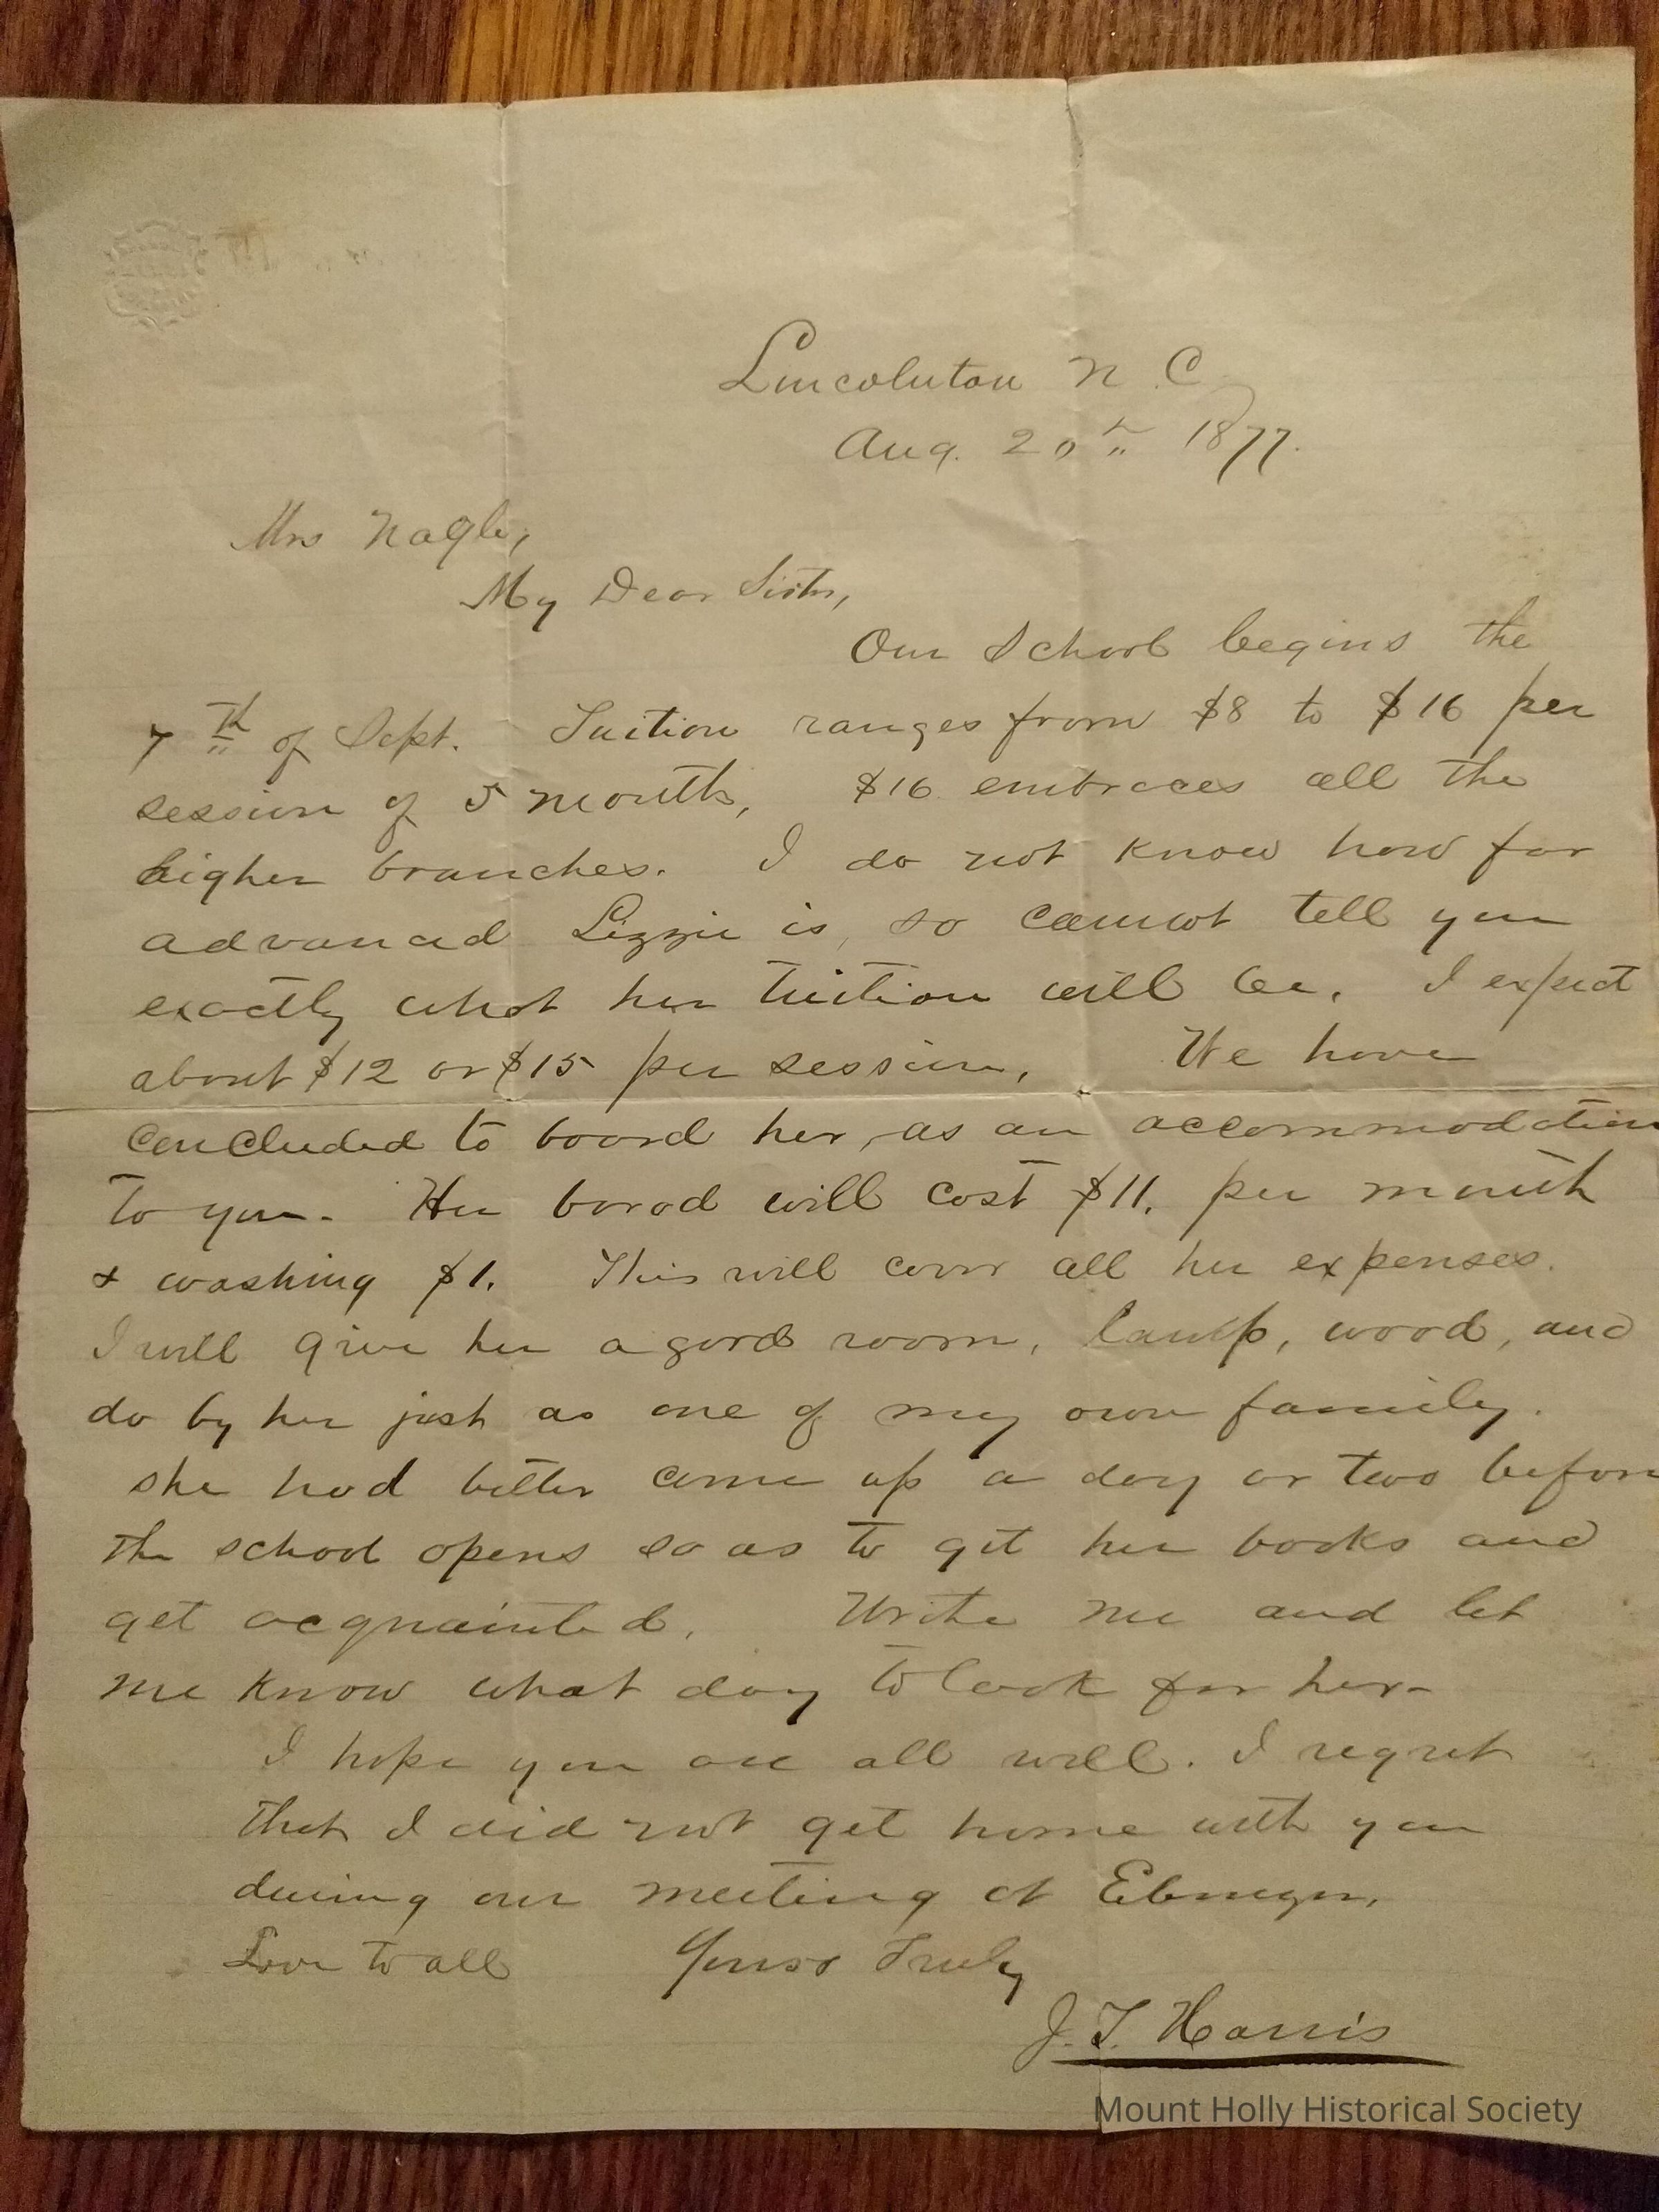 Lincolnton N. C.
Aug. 20th 1877.
Mrs Nagle,
My Dear Sister,
Our School begins the
7th of Sept. Tuition ranges from $8 to $16 per
session of 5 months, $16 embraces all the
higher branches. I do not know how far
advanced Lizzie is, so cannot tell you
exactly what her tuition will be. I expect
about $12 or $15 per session. We have
concluded to board her, as an accommodation
to you. Her board will cost $11. per month
& washing $1. This will cover all her expenses.
I will give her a good room, lamp, wood, and
do by her just as one of my own family.
She had better come up a day or two before
the school opens so as to get her books and
get acquainted. Write me and let
me know what day to look for her.
I hope you are all well. I regret
that I did not get home with you
during our meeting at Ebenezer.
Love to all Yours Truly
J. T. Harris
Mount Holly Historical Society